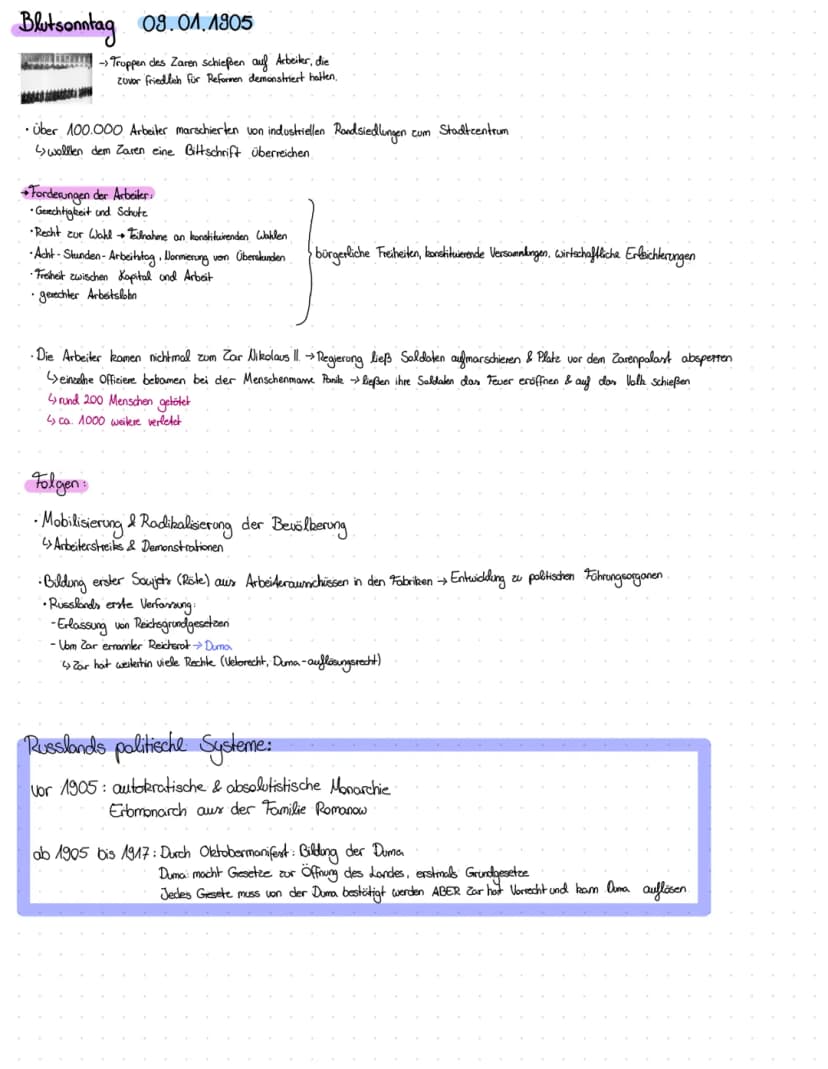 Blutsonntag 09.01.1905
→ Truppen des Zaren schießen auf Arbeiter, die
zuvor friedlich für Reformen demonstriert hatten.
· über 100.000 Arbeiter marschierten von industriellen Randsiedlungen zum Stadtcentrum
↳ wollten dem Zaren eine Bittschrift überreichen
→ Forderungen der Arbeiter:
· Gerechtigkeit und Schutz
· Recht zur Wahl → Teilnahme an konstituirenden Wahlen
· Acht-Stunden-Arbeitstag, Normierung von Überstunden
· Freiheit zwischen Kapital und Arbeit
· gerechter Arbeitslohn
bürgerliche Freiheiten, konstituierende Versammlungen, wirtschaftliche Erleichterungen
· Die Arbeiter kamen nichtmal zum Zar Nikolaus II. → Regierung ließ Soldaten aufmarschieren & Platz vor dem Zarenpalast absperren
↳ einzelne Offiziere bekamen bei der Menschenmasse Panik → ließen ihre Soldaten das Feuer eröffnen & auf das Volk schießen
↳ rund 200 Menschen getötet
↳ ca. 1000 weitere verletzt
Folgen:
· Mobilisierung & Radikalisierung der Bevölkerung
↳ Arbeiterstreiks & Demonstrationen
· Bildung erster Sowjets (Räte) aus Arbeiterausschüssen in den Fabriken → Entwicklung zu politischen Führungsorganen
· Russlands erste Verfassung:
- Erlassung von Reichsgrundgesetzen
- Vom Zar ernannter Reichsrat → Duma
↳ Zar hat weiterhin viele Rechte (Vetorecht, Duma-auflösungsrecht)
Russlands politische Systeme:
vor 1905: autokratische & absolutistische Monarchie
Erbmonarch aus der Familie Romanow
ab 1905 bis 1917: Durch Oktobermanifest: Bildung der Duma
Duma: macht Gesetze zur Öffnung des Landes, erstmals Grundgesetze
Jedes Gesetz muss von der Duma bestätigt werden ABER Zar hat Vorrecht und kann Duma auflösen